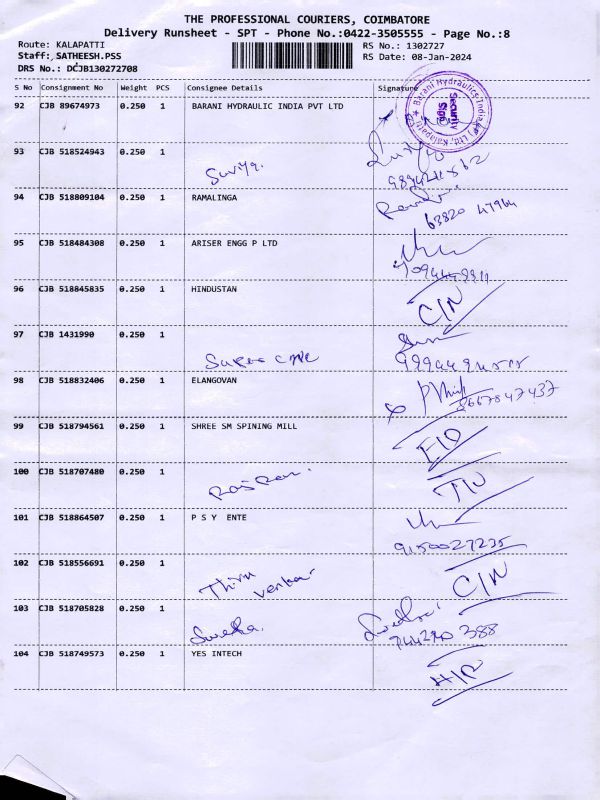 THE PROFESSIONAL COURIERS, COIMBATORE
Delivery Runsheet - SPT - Phone No.:0422-3505555 - Page No.:8
Route: KALAPATTI RS No.: 1302727
Staff: SATHEESH.PSS RS Date: 08-Jan-2024
DRS No.: DCJB130272708
S No Consignment No Weight PCS Consignee Details Signature
92 CJB 89674973 0.250 1 BARANI HYDRAULIC INDIA PVT LTD
Barani Hydraulics India (P) Ltd, Kalapatti
Security
Sign
93 CJB 518524943 0.250 1 Suriya.
94 CJB 518809104 0.250 1 RAMALINGA
63820 47964
95 CJB 518484308 0.250 1 ARISER ENGG P LTD
96 CJB 518845835 0.250 1 HINDUSTAN C/N
97 CJB 1431990 0.250 1
98 CJB 518832406 0.250 1 ELANGOVAN
8667847437
99 CJB 518794561 0.250 1 SHREE SM SPINING MILL
100 CJB 518707480 0.250 1
101 CJB 518864507 0.250 1 P S Y ENTE
9150027235
102 CJB 518556691 0.250 1 Thiru C/N
103 CJB 518705828 0.250 1
104 CJB 518749573 0.250 1 YES INTECH